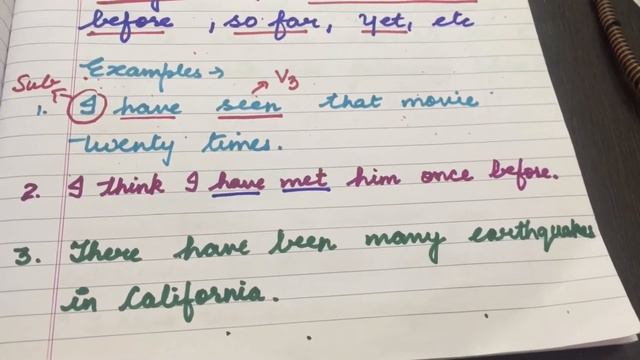 before, so far, yet, etc
Examples →
Sub
V3
1. I have seen that movie
twenty times.
2. I think I have met him once before.
3. There have been many earthquakes
in California.